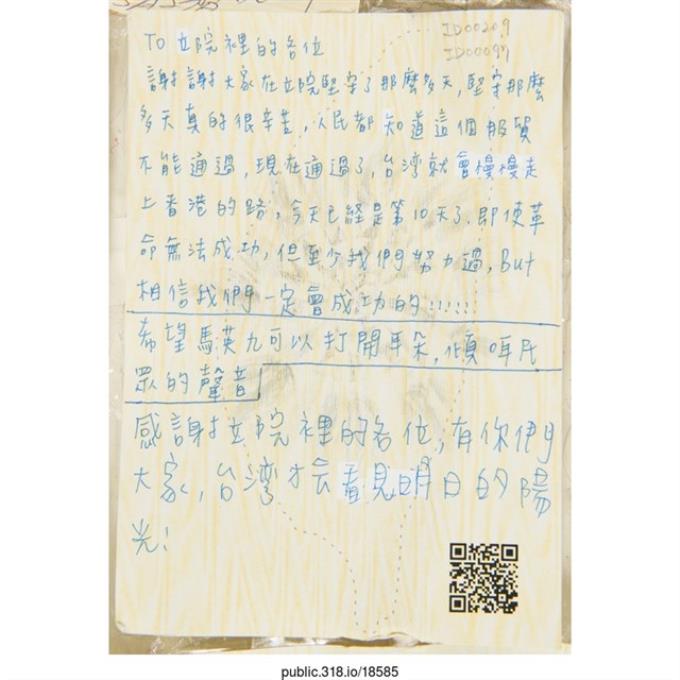 ID00209
ID00097
TO 立院裡的各位
謝謝大家在立院堅守了那麼多天,堅守那麼
多天真的很辛苦,人民都知道這個服貿
不能通過,現在通過了,台湾就會慢慢走
上香港的路,今天已経是第10天了.即使革
命無法成功,但至少我們努力過,But
相信我們一定會成功的!!!!!!
希望馬英九可以打開耳朵,傾听民
眾的聲音
感謝立院裡的各位,有你們
大家,台湾才会看見明日的陽
光!
public.318.io/18585